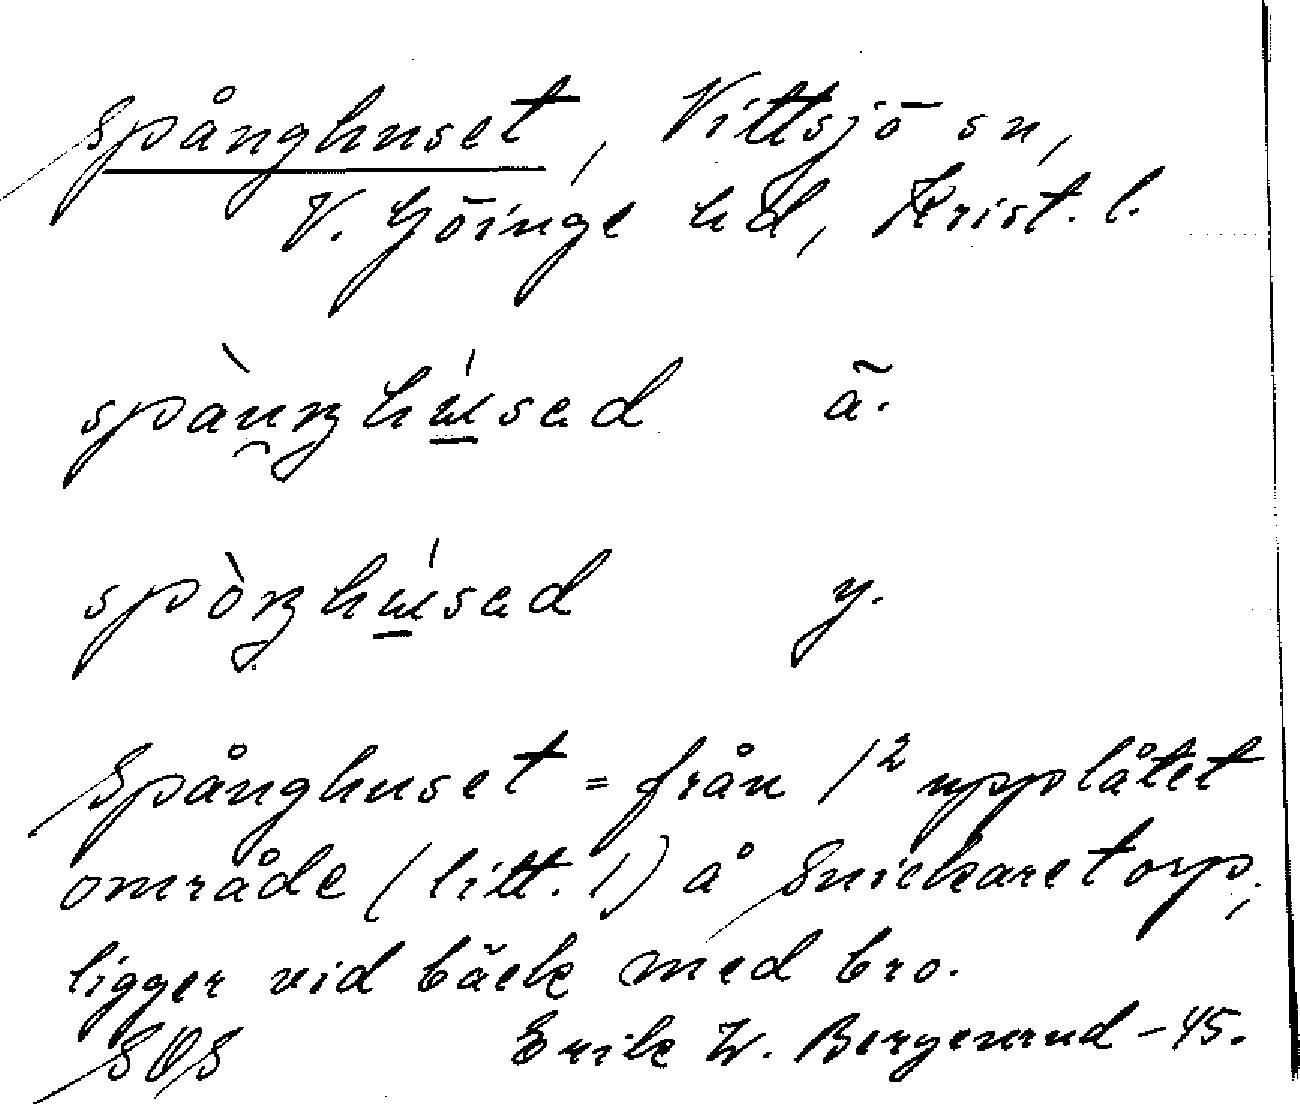 Spånghuset, Vittsjö sn,
V. Göinge hd, Krist. l.
ä.
y.
Spånghuset = från 1² upplåtet
område (litt. 1) å Snickaretorp;
ligger vid bäck med bro.
SOS Erik W. Bergenrud -45.